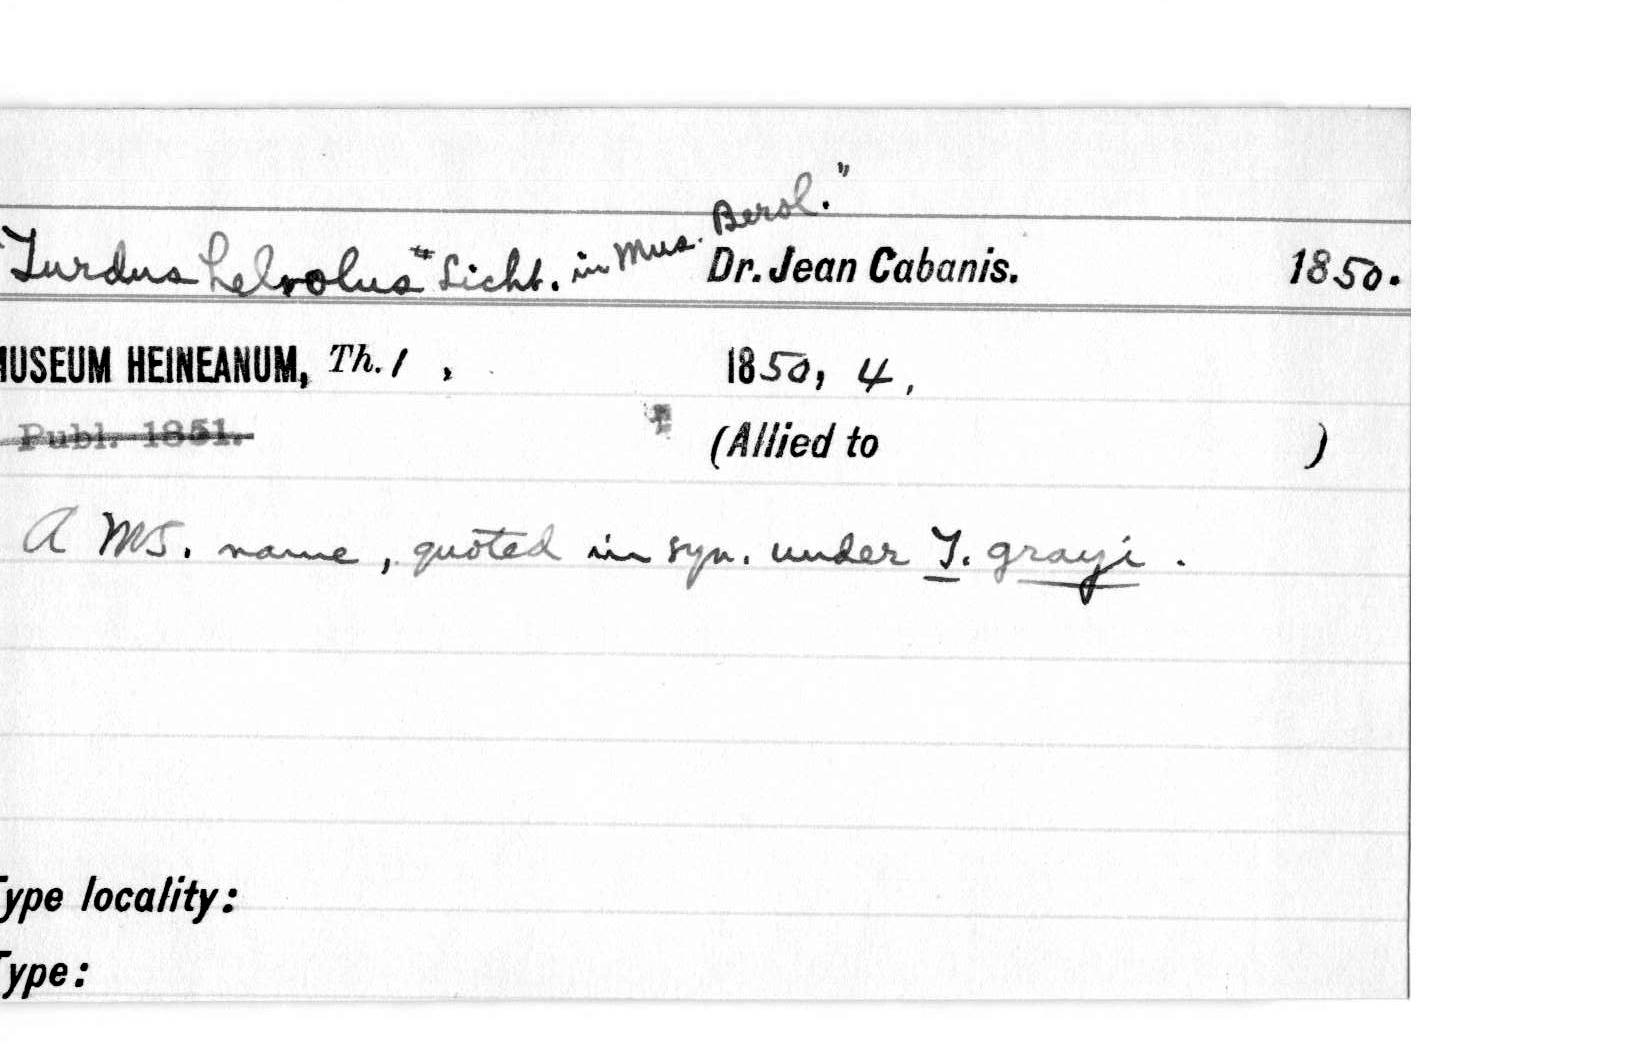 "Turdus helvolus" Licht. in Mus. Berol." Dr. Jean Cabanis. 1850.
MUSEUM HEINEANUM, Th. 1 , 1850, 4,
Publ. 1851. (Allied to )
A MS. name, quoted in syn. under T. grayi.
Type locality:
Type: